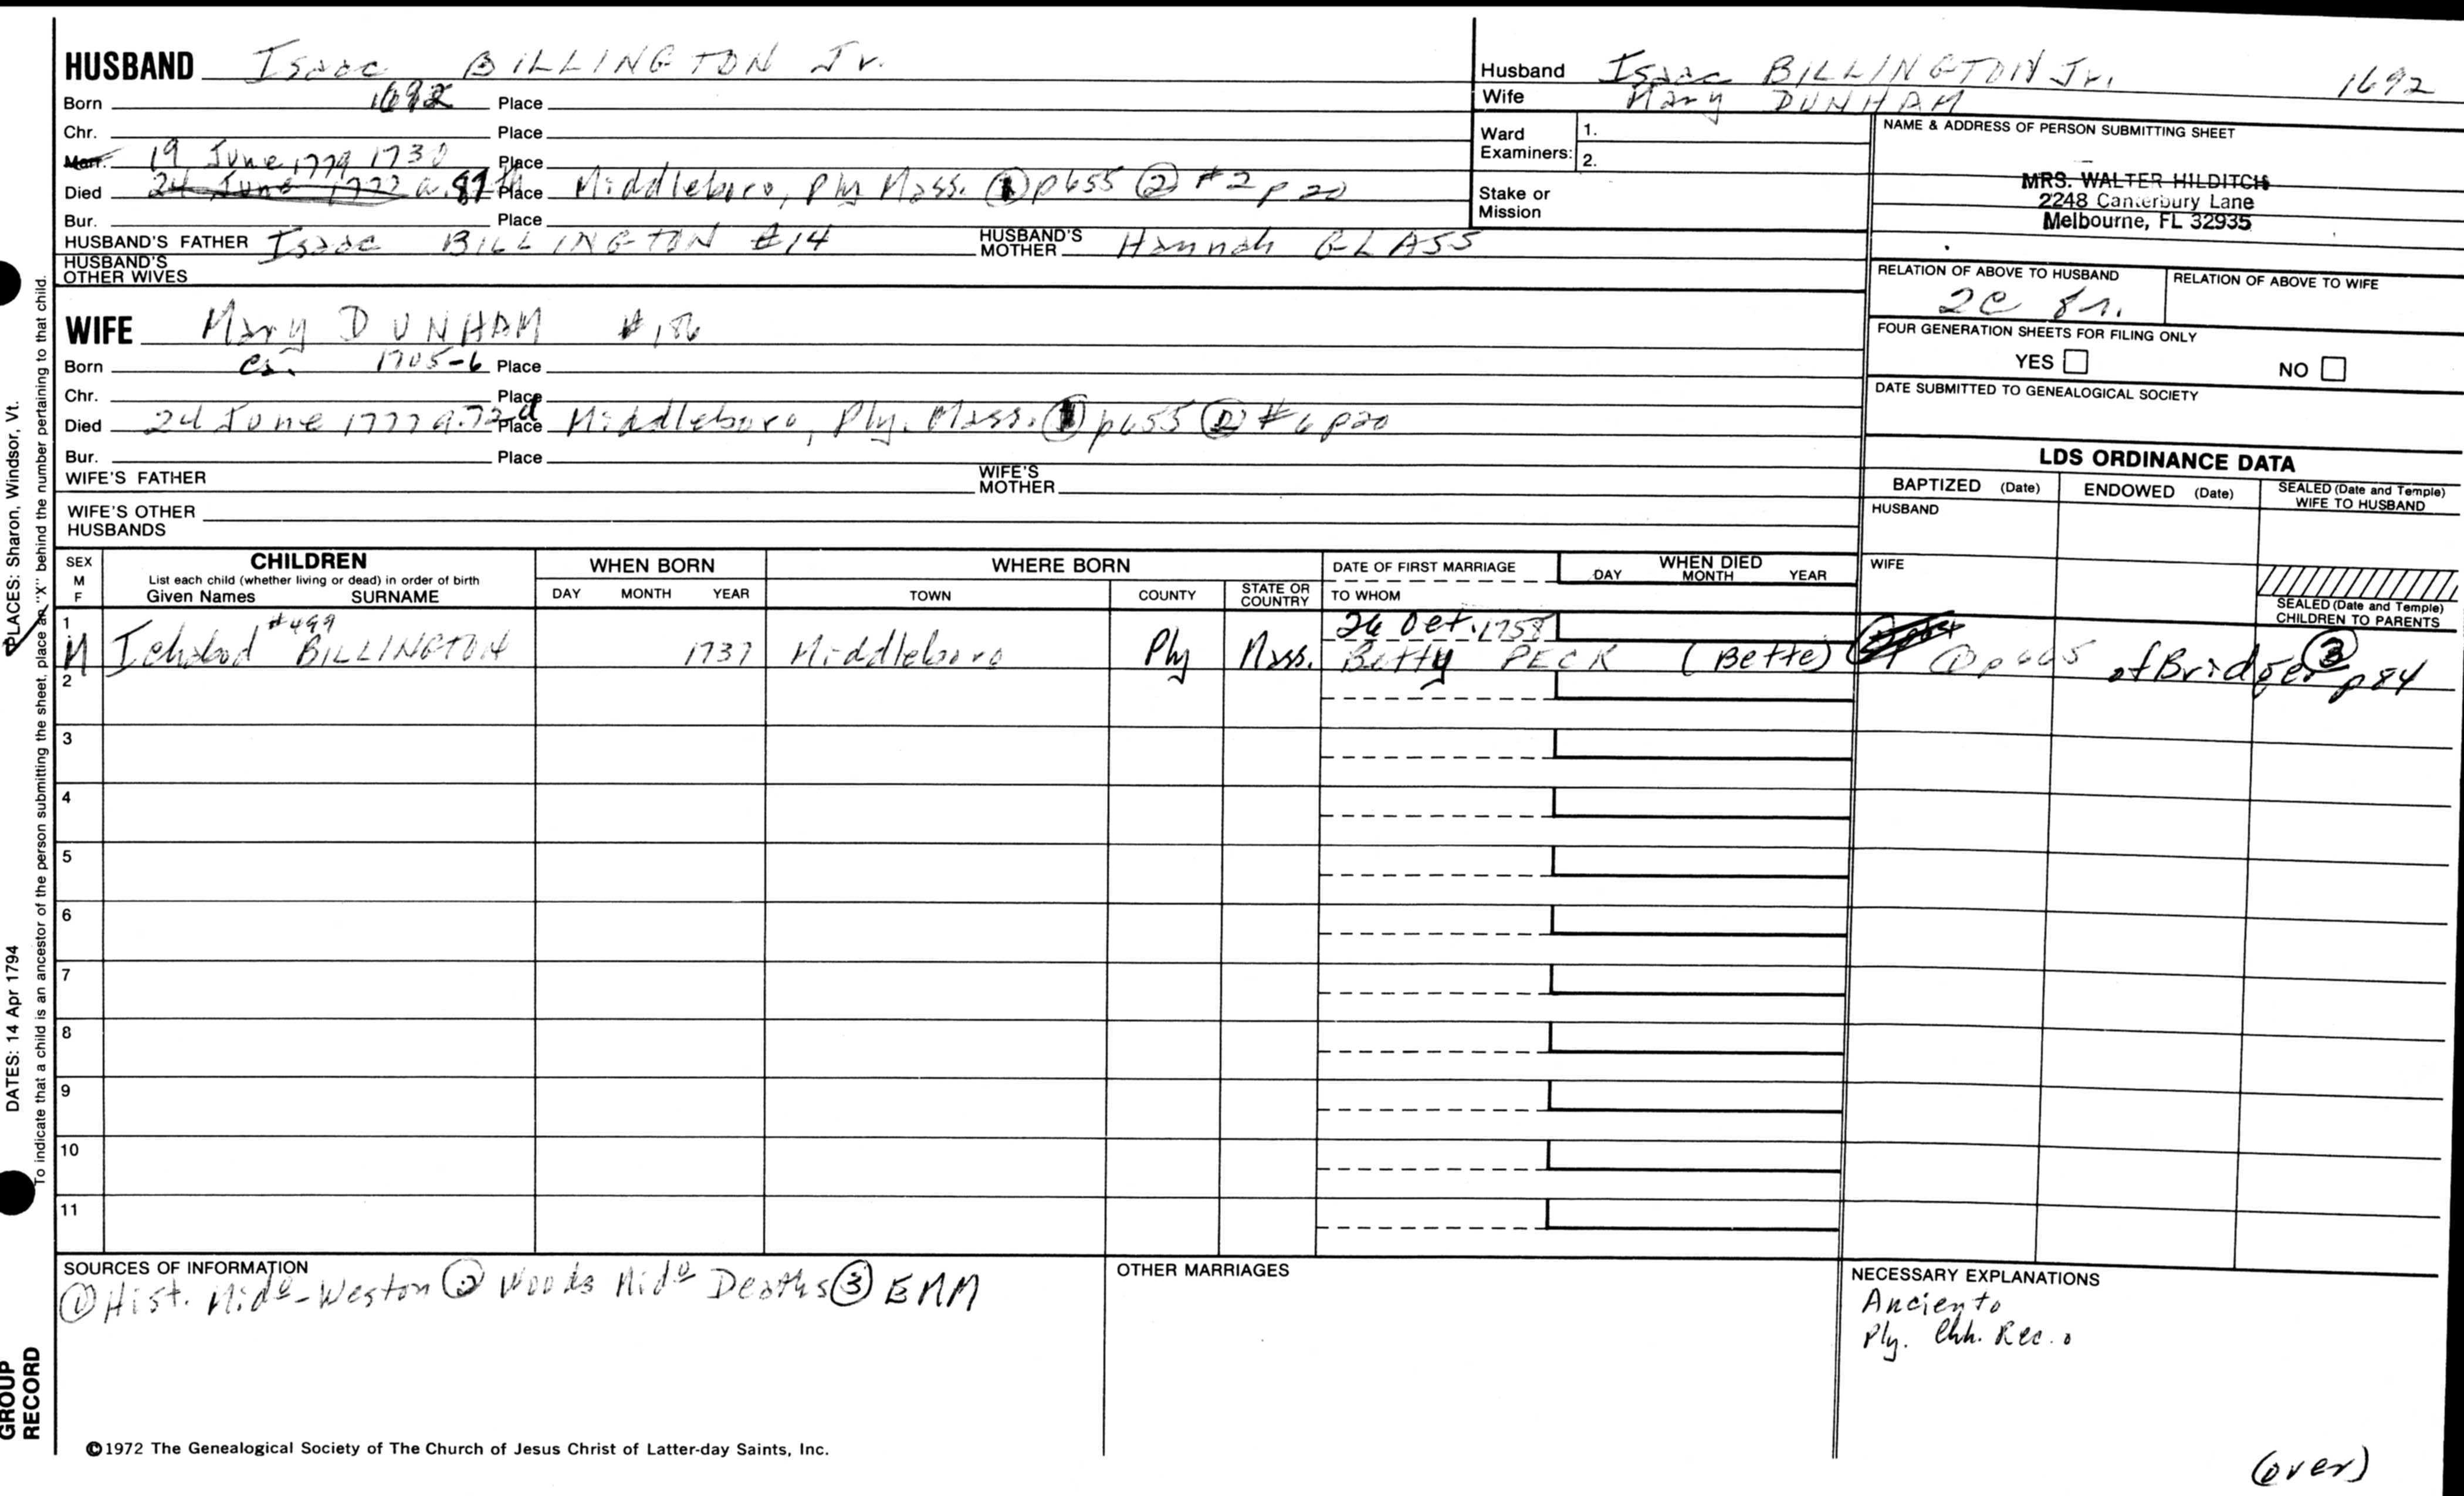 HUSBAND Isaac BILLINGTON Jr.
Born 1692 Place
Chr. Place
Marr. 19 June 1779 1730 Place
Died 24 June 1777 a. 87th Place Middleboro, Ply Mass. ① p655 ② #2 p 20
Bur. Place
HUSBAND'S FATHER Isaac BILLINGTON #14 HUSBAND'S MOTHER Hannah GLASS
HUSBAND'S OTHER WIVES
Husband Isaac BILLINGTON Jr. 1692
Wife Mary DUNHAM
Ward Examiners: 1.
2.
Stake or Mission
NAME & ADDRESS OF PERSON SUBMITTING SHEET
MRS. WALTER HILDITCH
2248 Canterbury Lane
Melbourne, FL 32935
RELATION OF ABOVE TO HUSBAND
2c 8r.
RELATION OF ABOVE TO WIFE
FOUR GENERATION SHEETS FOR FILING ONLY
YES NO
DATE SUBMITTED TO GENEALOGICAL SOCIETY
WIFE Mary DUNHAM #186
Born ca. 1705-6 Place
Chr. Place
Died 24 June 1777 a. 72d Place Middleboro, Ply. Mass. ① p655 ② #6 p20
Bur. Place
WIFE'S FATHER WIFE'S MOTHER
WIFE'S OTHER HUSBANDS
LDS ORDINANCE DATA
BAPTIZED (Date) ENDOWED (Date) SEALED (Date and Temple) WIFE TO HUSBAND
HUSBAND
WIFE
SEALED (Date and Temple) CHILDREN TO PARENTS
SEX M F
CHILDREN
List each child (whether living or dead) in order of birth
Given Names SURNAME
WHEN BORN
DAY MONTH YEAR
WHERE BORN
TOWN COUNTY STATE OR COUNTRY
DATE OF FIRST MARRIAGE
TO WHOM
WHEN DIED
DAY MONTH YEAR
1 #499 26 Oct. 1758
M Ichabod BILLINGTON 1737 Middleboro Ply Mass. Betty PECK (Bette) ① p665 of Bridge ③ p84
2
3
4
5
6
7
8
9
10
11
SOURCES OF INFORMATION
① Hist. Mido-Weston ② Woods Mido Deaths ③ EMM
OTHER MARRIAGES
NECESSARY EXPLANATIONS
Ancient
Ply. Chh. Rec.
©1972 The Genealogical Society of The Church of Jesus Christ of Latter-day Saints, Inc.
(over)
PLACES: Sharon, Windsor, Vt.
DATES: 14 Apr 1794
To indicate that a child is an ancestor of the person submitting the sheet, place an "X" behind the number pertaining to that child.
GROUP
RECORD